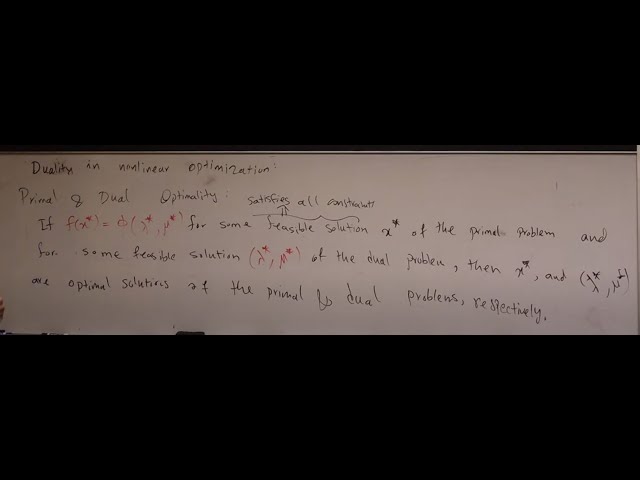 Duality in nonlinear optimization:
Primal & Dual Optimality: satisfies all constraints
If f(x*) = ϕ(λ*, μ*) for some feasible solution x* of the primal problem and
for some feasible solution (λ*, μ*) of the dual problem, then x*, and (λ*, μ*)
are optimal solutions of the primal & dual problems, respectively.